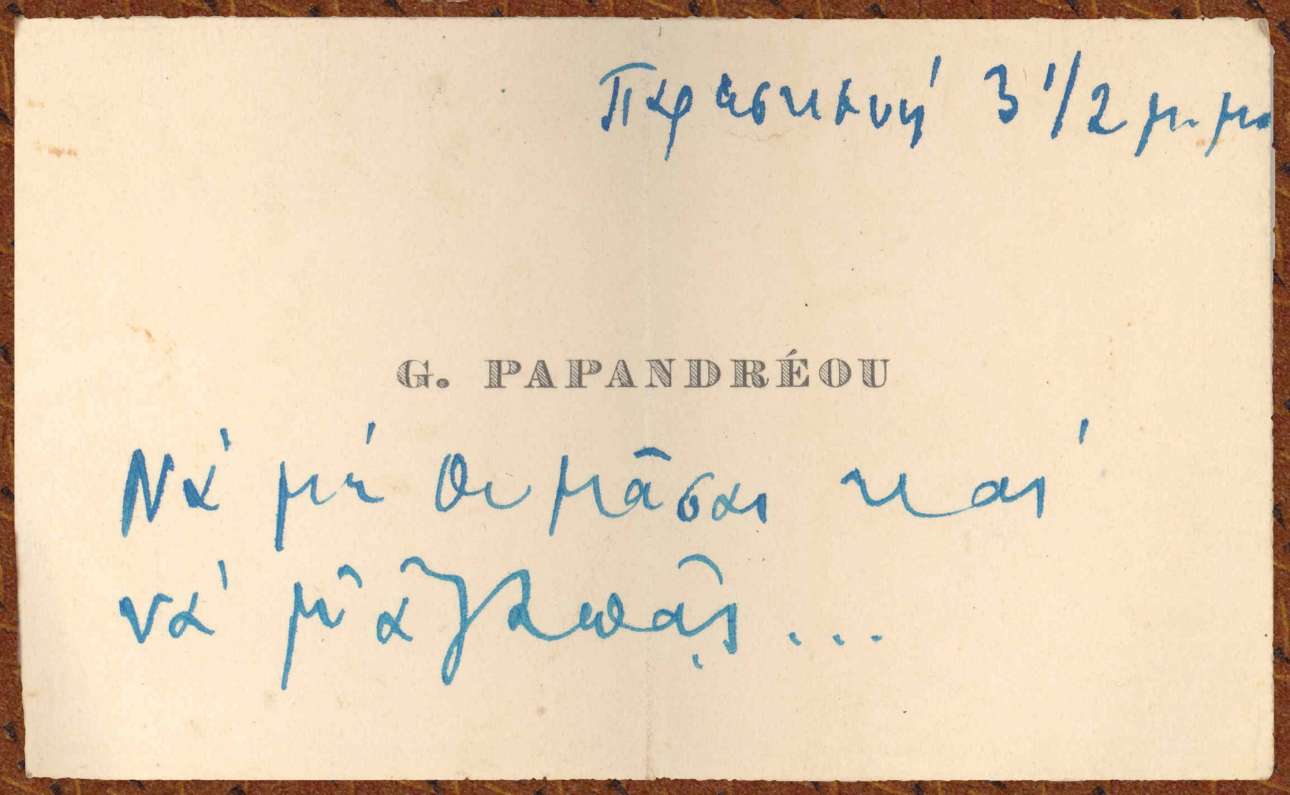 Παρασκευή 3 1/2 μ.μ.
G. PAPANDRÉOU
Νά μέ θυμᾶσαι καί
νά μ' ἀγαπᾷς...